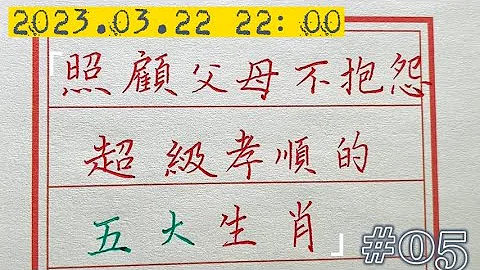 2023.03.22 22:00
「照顧父母不抱怨
超級孝順的
五大生肖」
#05